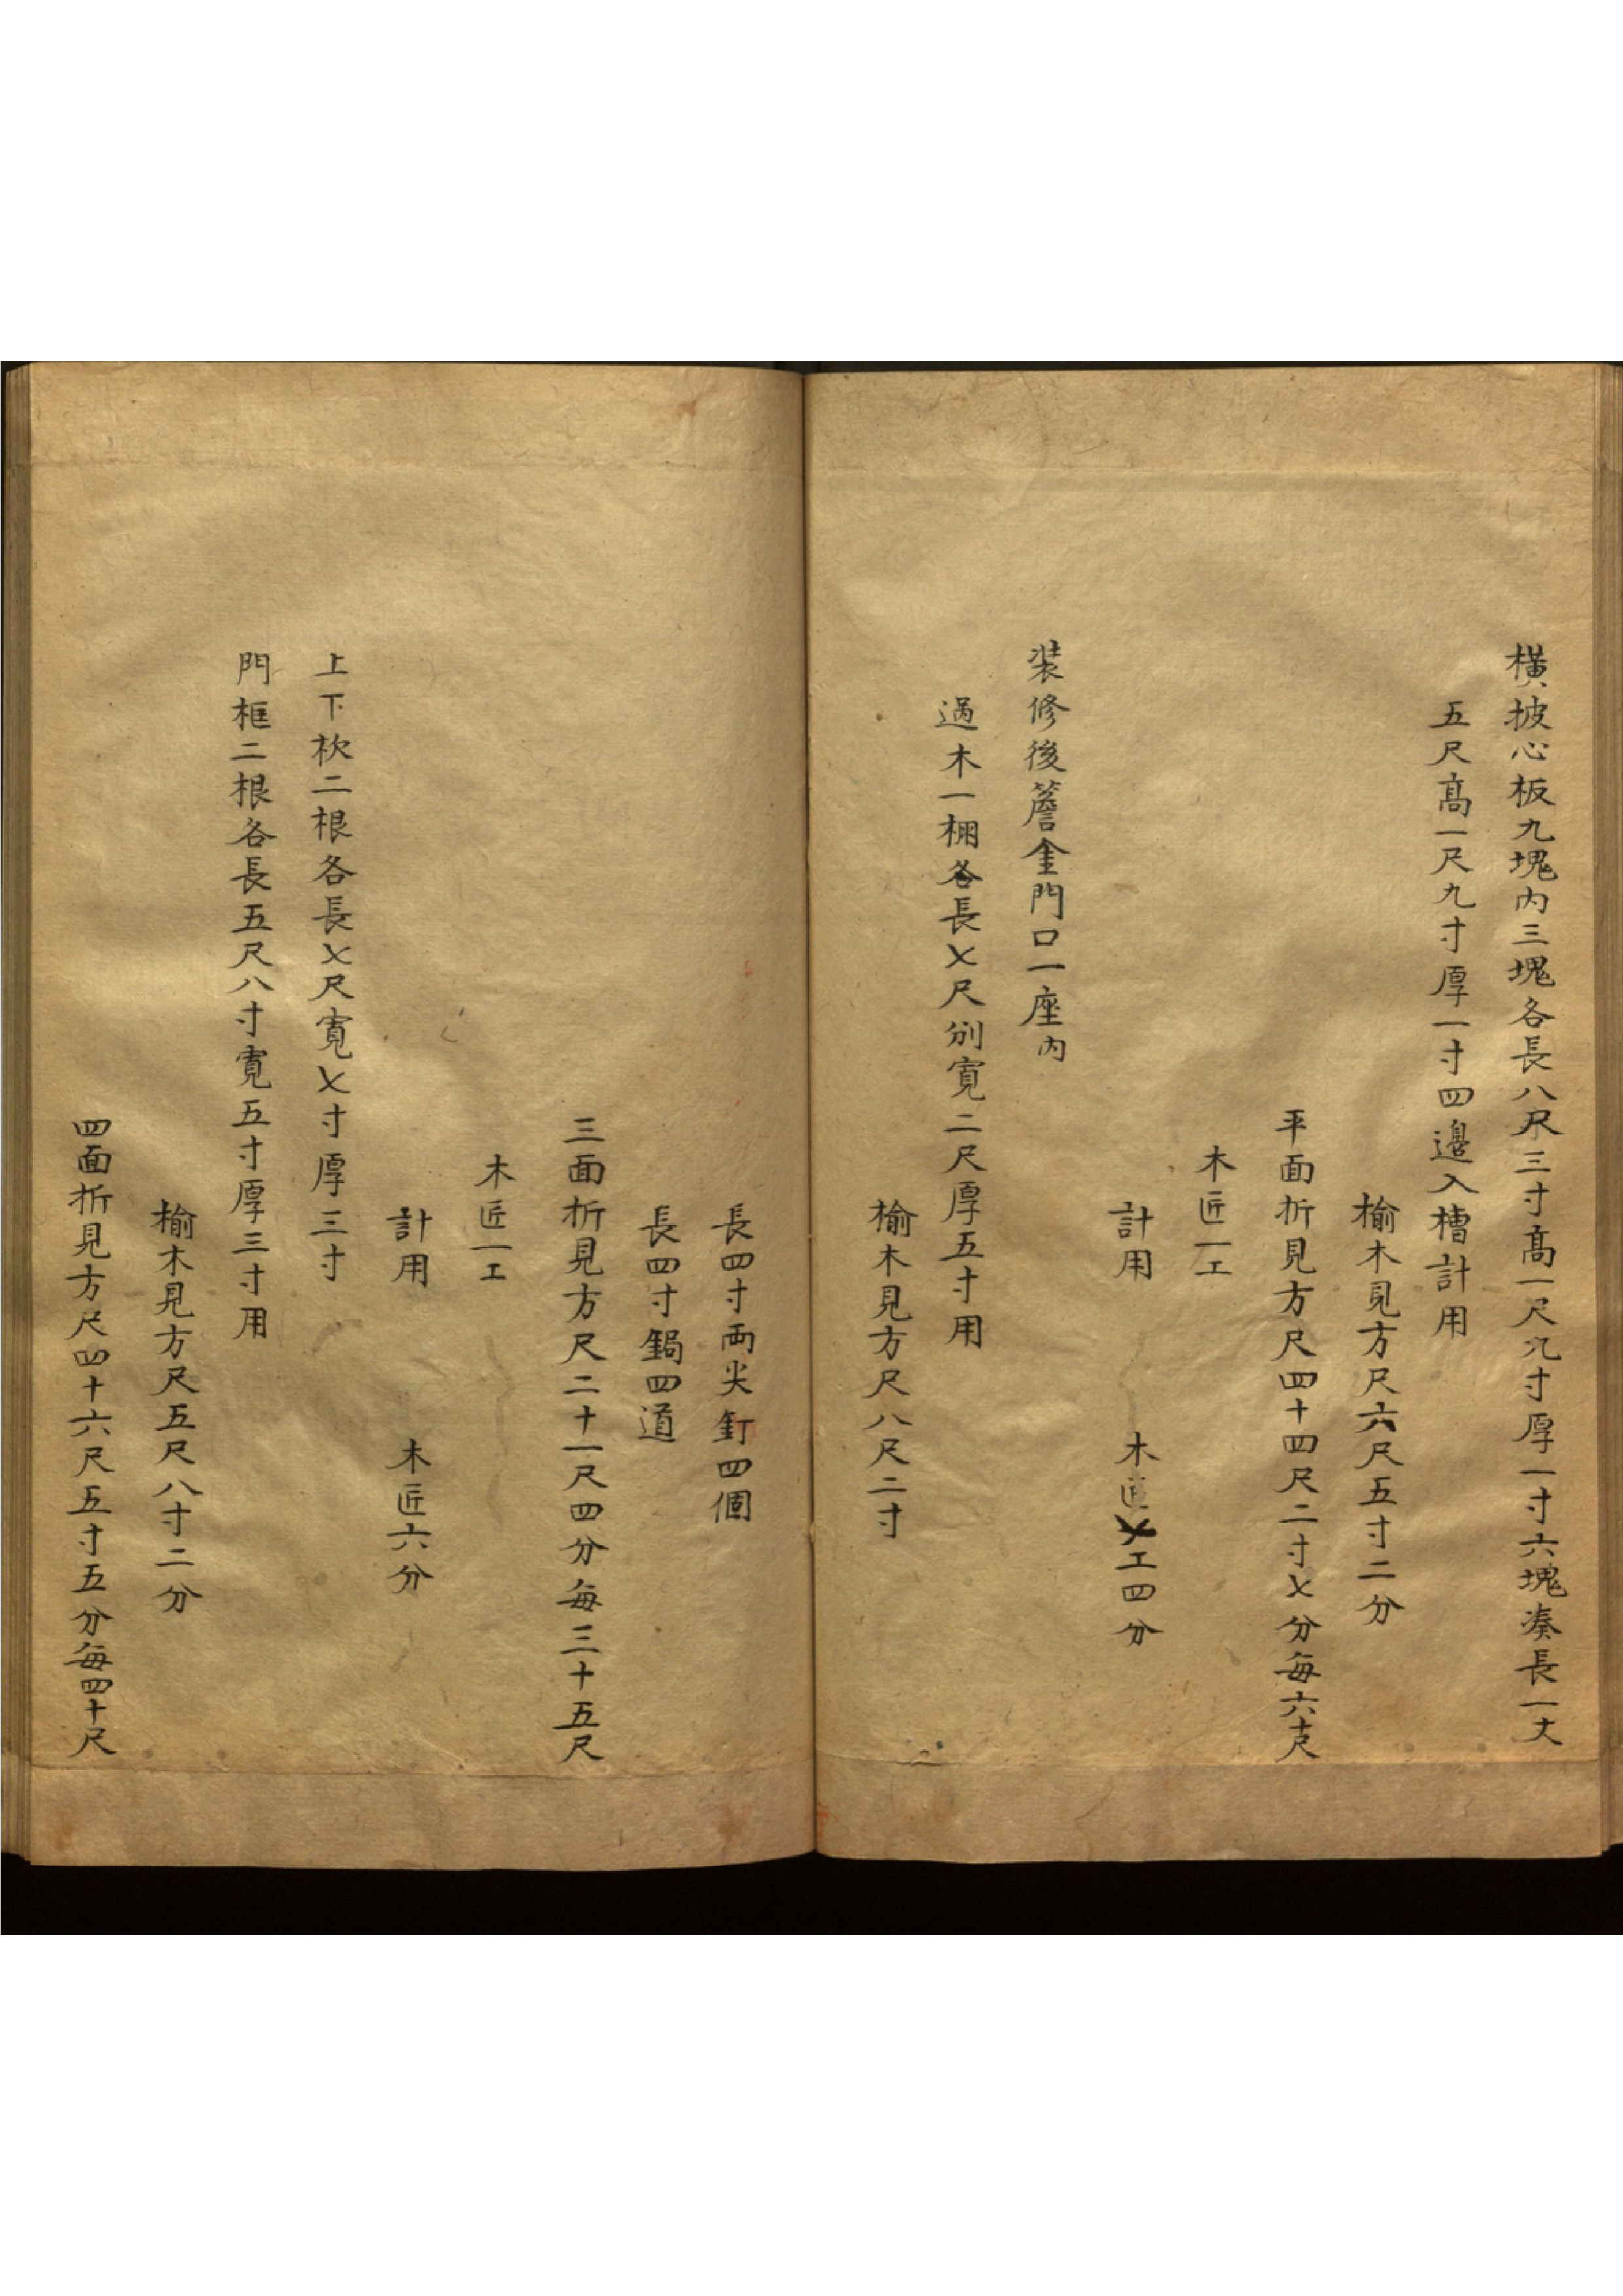 橫披心板九塊內三塊各長八尺三寸高一尺九寸厚一寸六塊湊長一丈
五尺高一尺九寸厚一寸四邊入槽計用
榆木見方尺六尺五寸二分
平面折見方尺四十四尺二寸七分每六十尺
木匠一工
計用 木匠七工四分
装修後簷金門口一座內
過木一棚各長七尺別寬二尺厚五寸用
榆木見方尺八尺二寸
長四寸両尖釘四個
長四寸鋦四道
三面折見方尺二十一尺四分每三十五尺
木匠一工
計用 木匠六分
上下枕二根各長七尺寬七寸厚三寸
門框二根各長五尺八寸寬五寸厚三寸用
榆木見方尺五尺八寸二分
四面折見方尺四十六尺五寸五分每四十尺